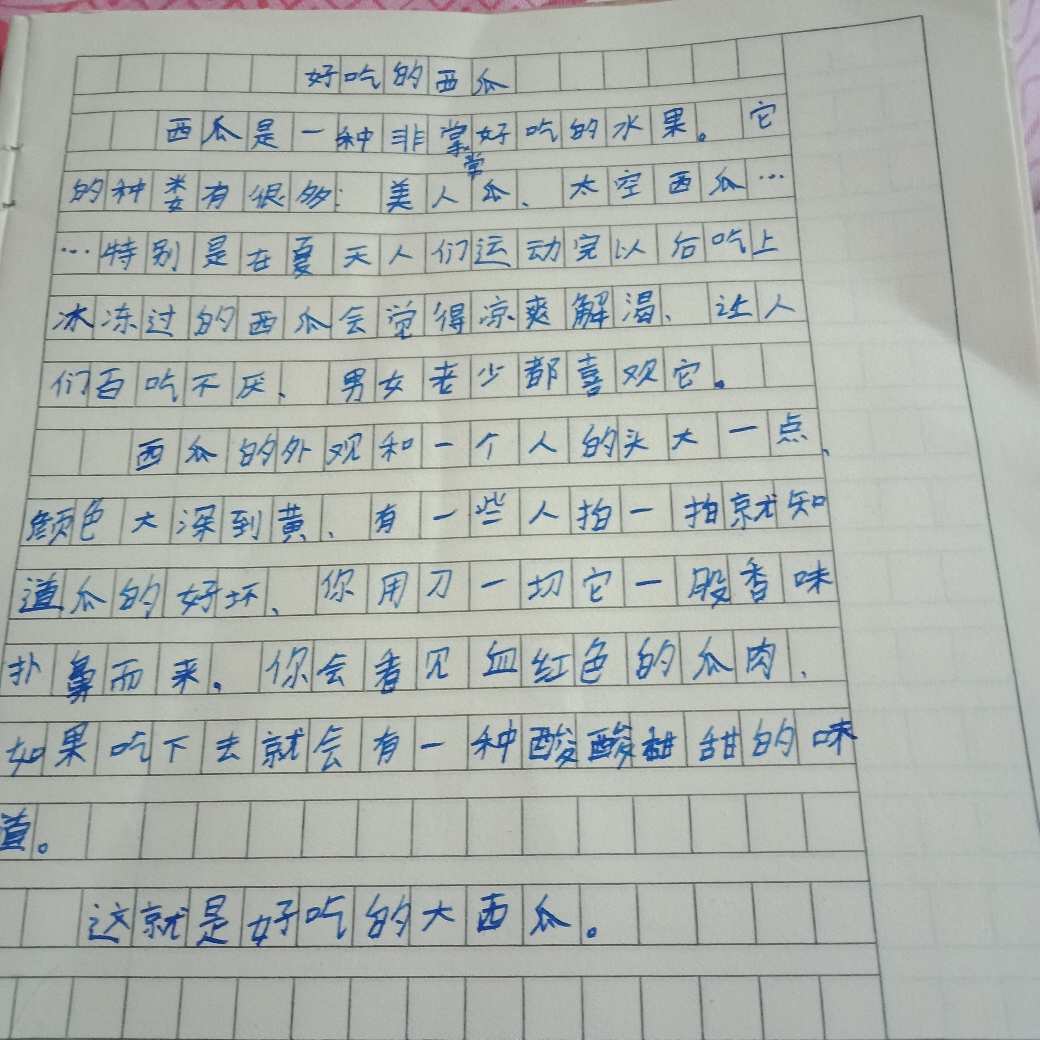 好吃的西瓜
西瓜是一种非常好吃的水果。它
的种类有很多：美人瓜、太空西瓜…
…特别是在夏天人们运动完以后吃上
冰冻过的西瓜会觉得凉爽解渴、让人
们百吃不厌、男女老少都喜欢它。
西瓜的外观和一个人的头大一点、
颜色大深到黄、有一些人拍一拍就知
道瓜的好坏、你用刀一切它一股香味
扑鼻而来。你会看见血红色的瓜肉、
如果吃下去就会有一种酸酸甜甜的味
道。
这就是好吃的大西瓜。